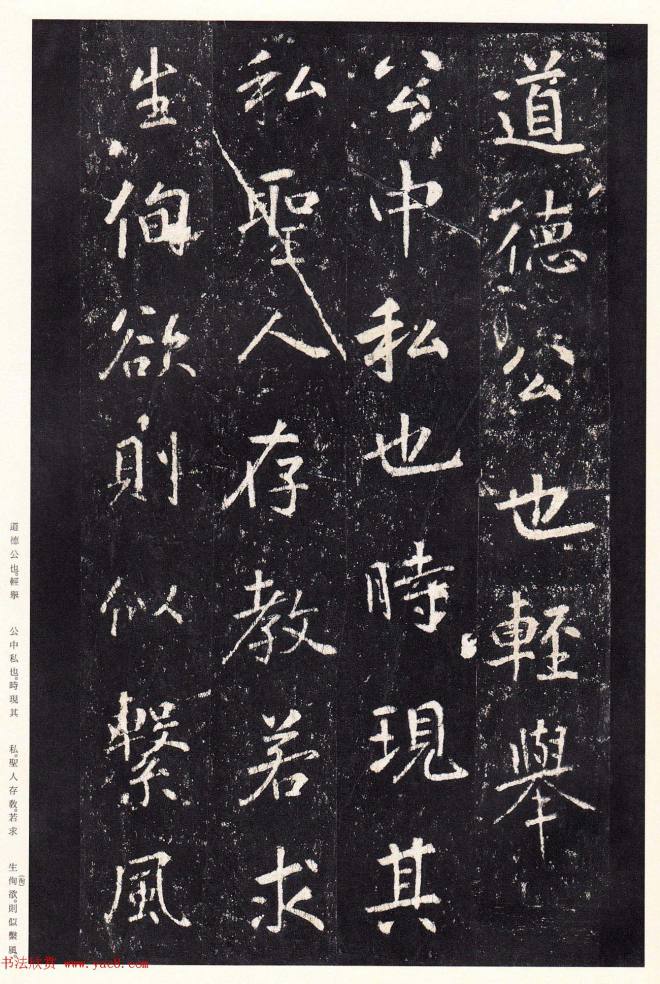 道德公也輕舉
公中私也時現其
私聖人存教若求
生徇欲則似繫風
道德公也。輕舉　公中私也。時現其　私。聖人存教。若求　生徇欲。則似繫風。
书法欣赏 www.yac8.com